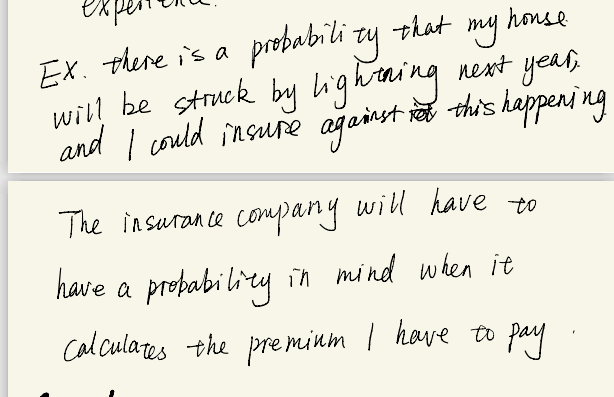 experience.
Ex. there is a probability that my house
will be struck by lightning next year,
and I could insure against this happening
The insurance company will have to
have a probability in mind when it
calculates the premium I have to pay.